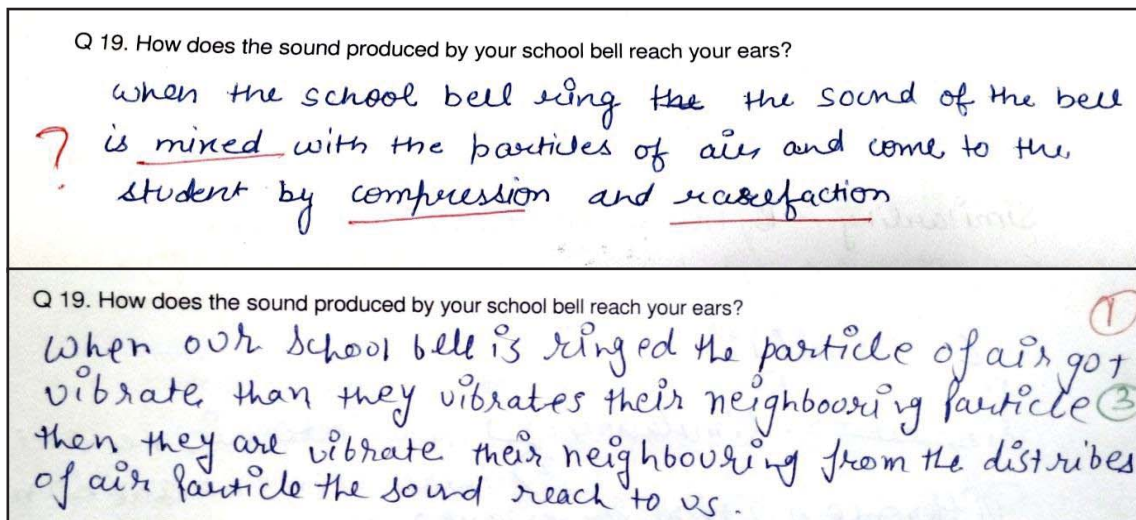 Q 19. How does the sound produced by your school bell reach your ears?
when the school bell ring the the sound of the bell
? is mixed with the particles of air and come to the
student by compression and rarefaction
Q 19. How does the sound produced by your school bell reach your ears?
1
When our school bell is ringed the particle of air got
vibrate than they vibrates their neighboouring particle 3
then they are vibrate their neighbouring from the distribes
of air particle the sound reach to us.